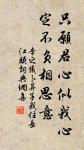 只願君心似我心
定不負相思意
李之儀卜算子我住長
江頭詞典網集